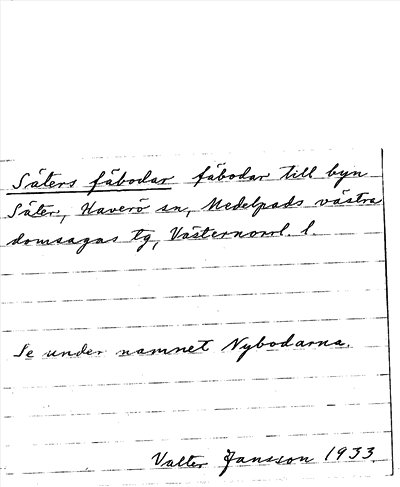 Säters fäbodar fäbodar till byn
Säter, Haverö sn, Medelpads västra
domsagas tg, Västernorrl. l.
Se under namnet Nybodarna.
Valter Jansson 1933.